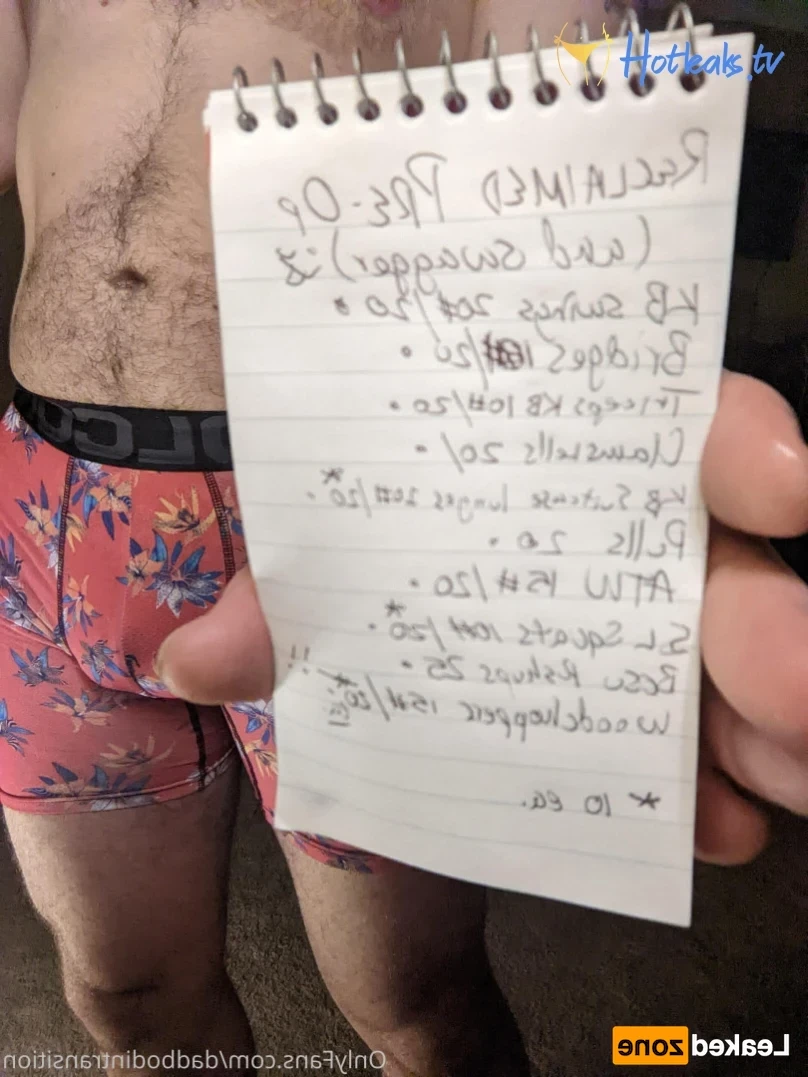 Hotleaks.tv
RECLAIMED PRE-OP
(and swagger)
KB swings 20#/20 •
Bridges /20 •
Triceps KB 10#/20 •
Clamshells 20/ •
KB Suitcase lunges 20#/20* •
Pulls 20 •
ATW 15#/20 •
SL Squats 10#/20* •
BOSU Pshups 25 •
Woodchoppers 15#/20*
* 10 ea.
Leakedzone
OnlyFans.com/dadbodintransition